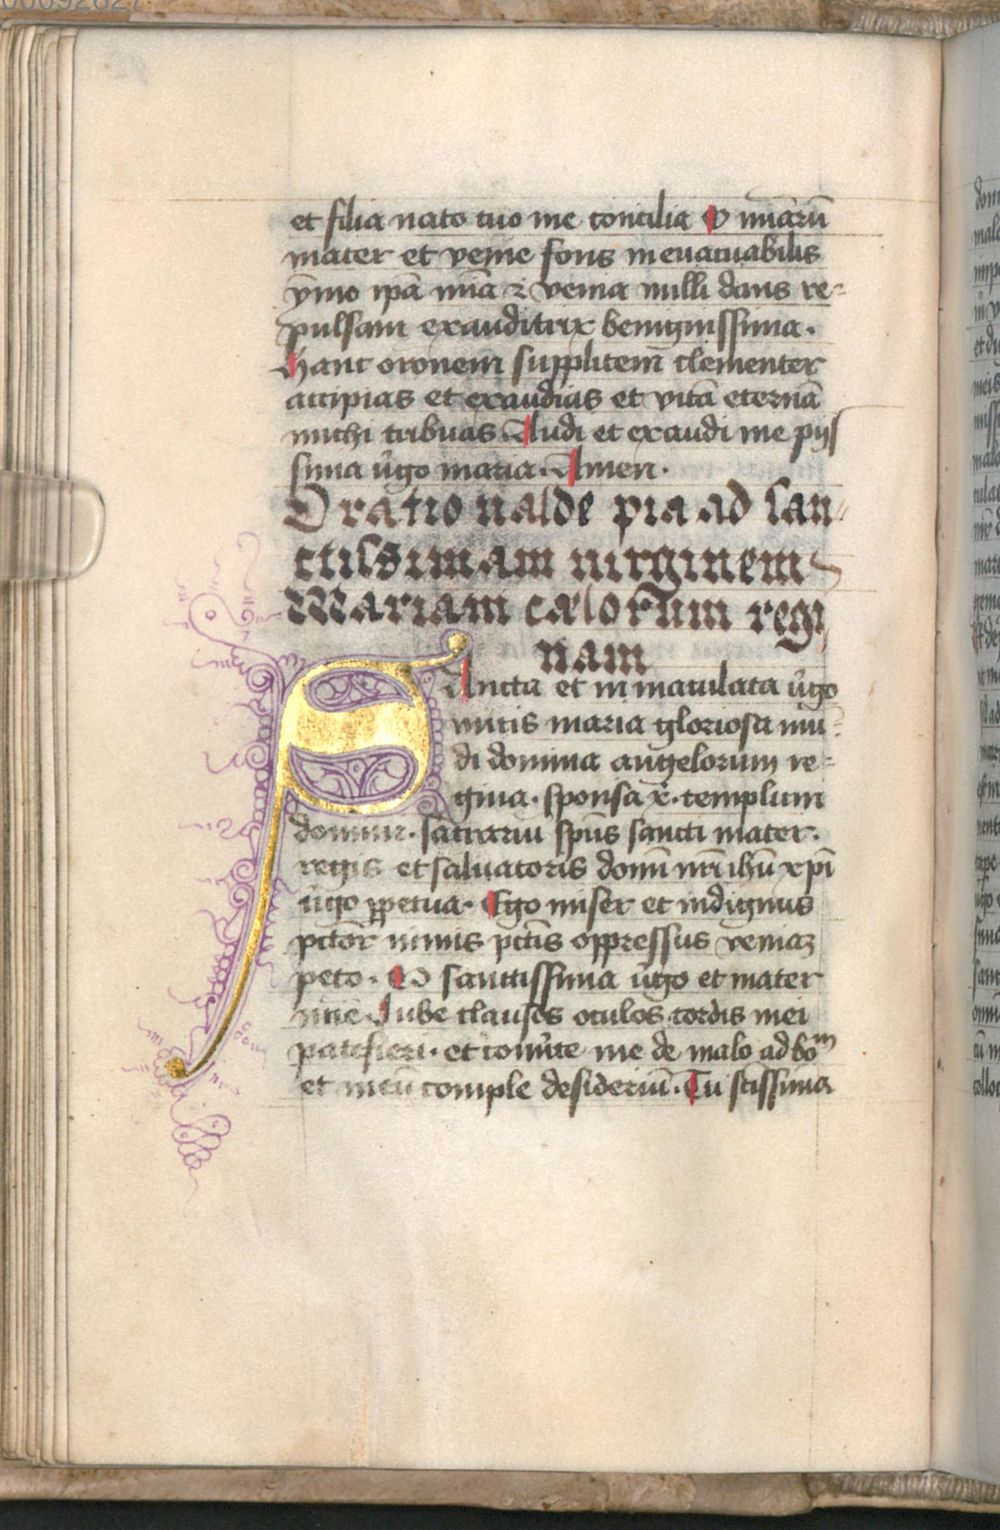 et filia nato tuo me concilia O mīarū
mater et venie fons inevacuabilis
ymo ipā mīa ⁊ venia nulli dans re-
pulsam exauditrix benignissima.
hanc oronem supplicem clementer
accipias et exaudias et vitā eternā
michi tribuas Audi et exaudi me pijs
sima v̄go maria. Amen.
Oratio ualde pia ad san-
ctissimam uirginem
Mariam cælorum regi
nam
Sancta et in maculata v̄go
mitis maria gloriosa mū-
di domina angelorum re-
gina. sponsa x̄. templum
domini. sacrariū sp̄us sancti mater.
regis et saluatoris domī nr̄i ihū xp̄i
v̄go ꝑpetua. Ego miser et indignus
pctōr nimis pctīs oppressus veniaꝫ
peto. O sanctissima v̄go et mater
Iube clausos oculos cordis mei
patefieri. et conūte me de malo ad boᵐ
et meū comple desideriū. Tu sctissima